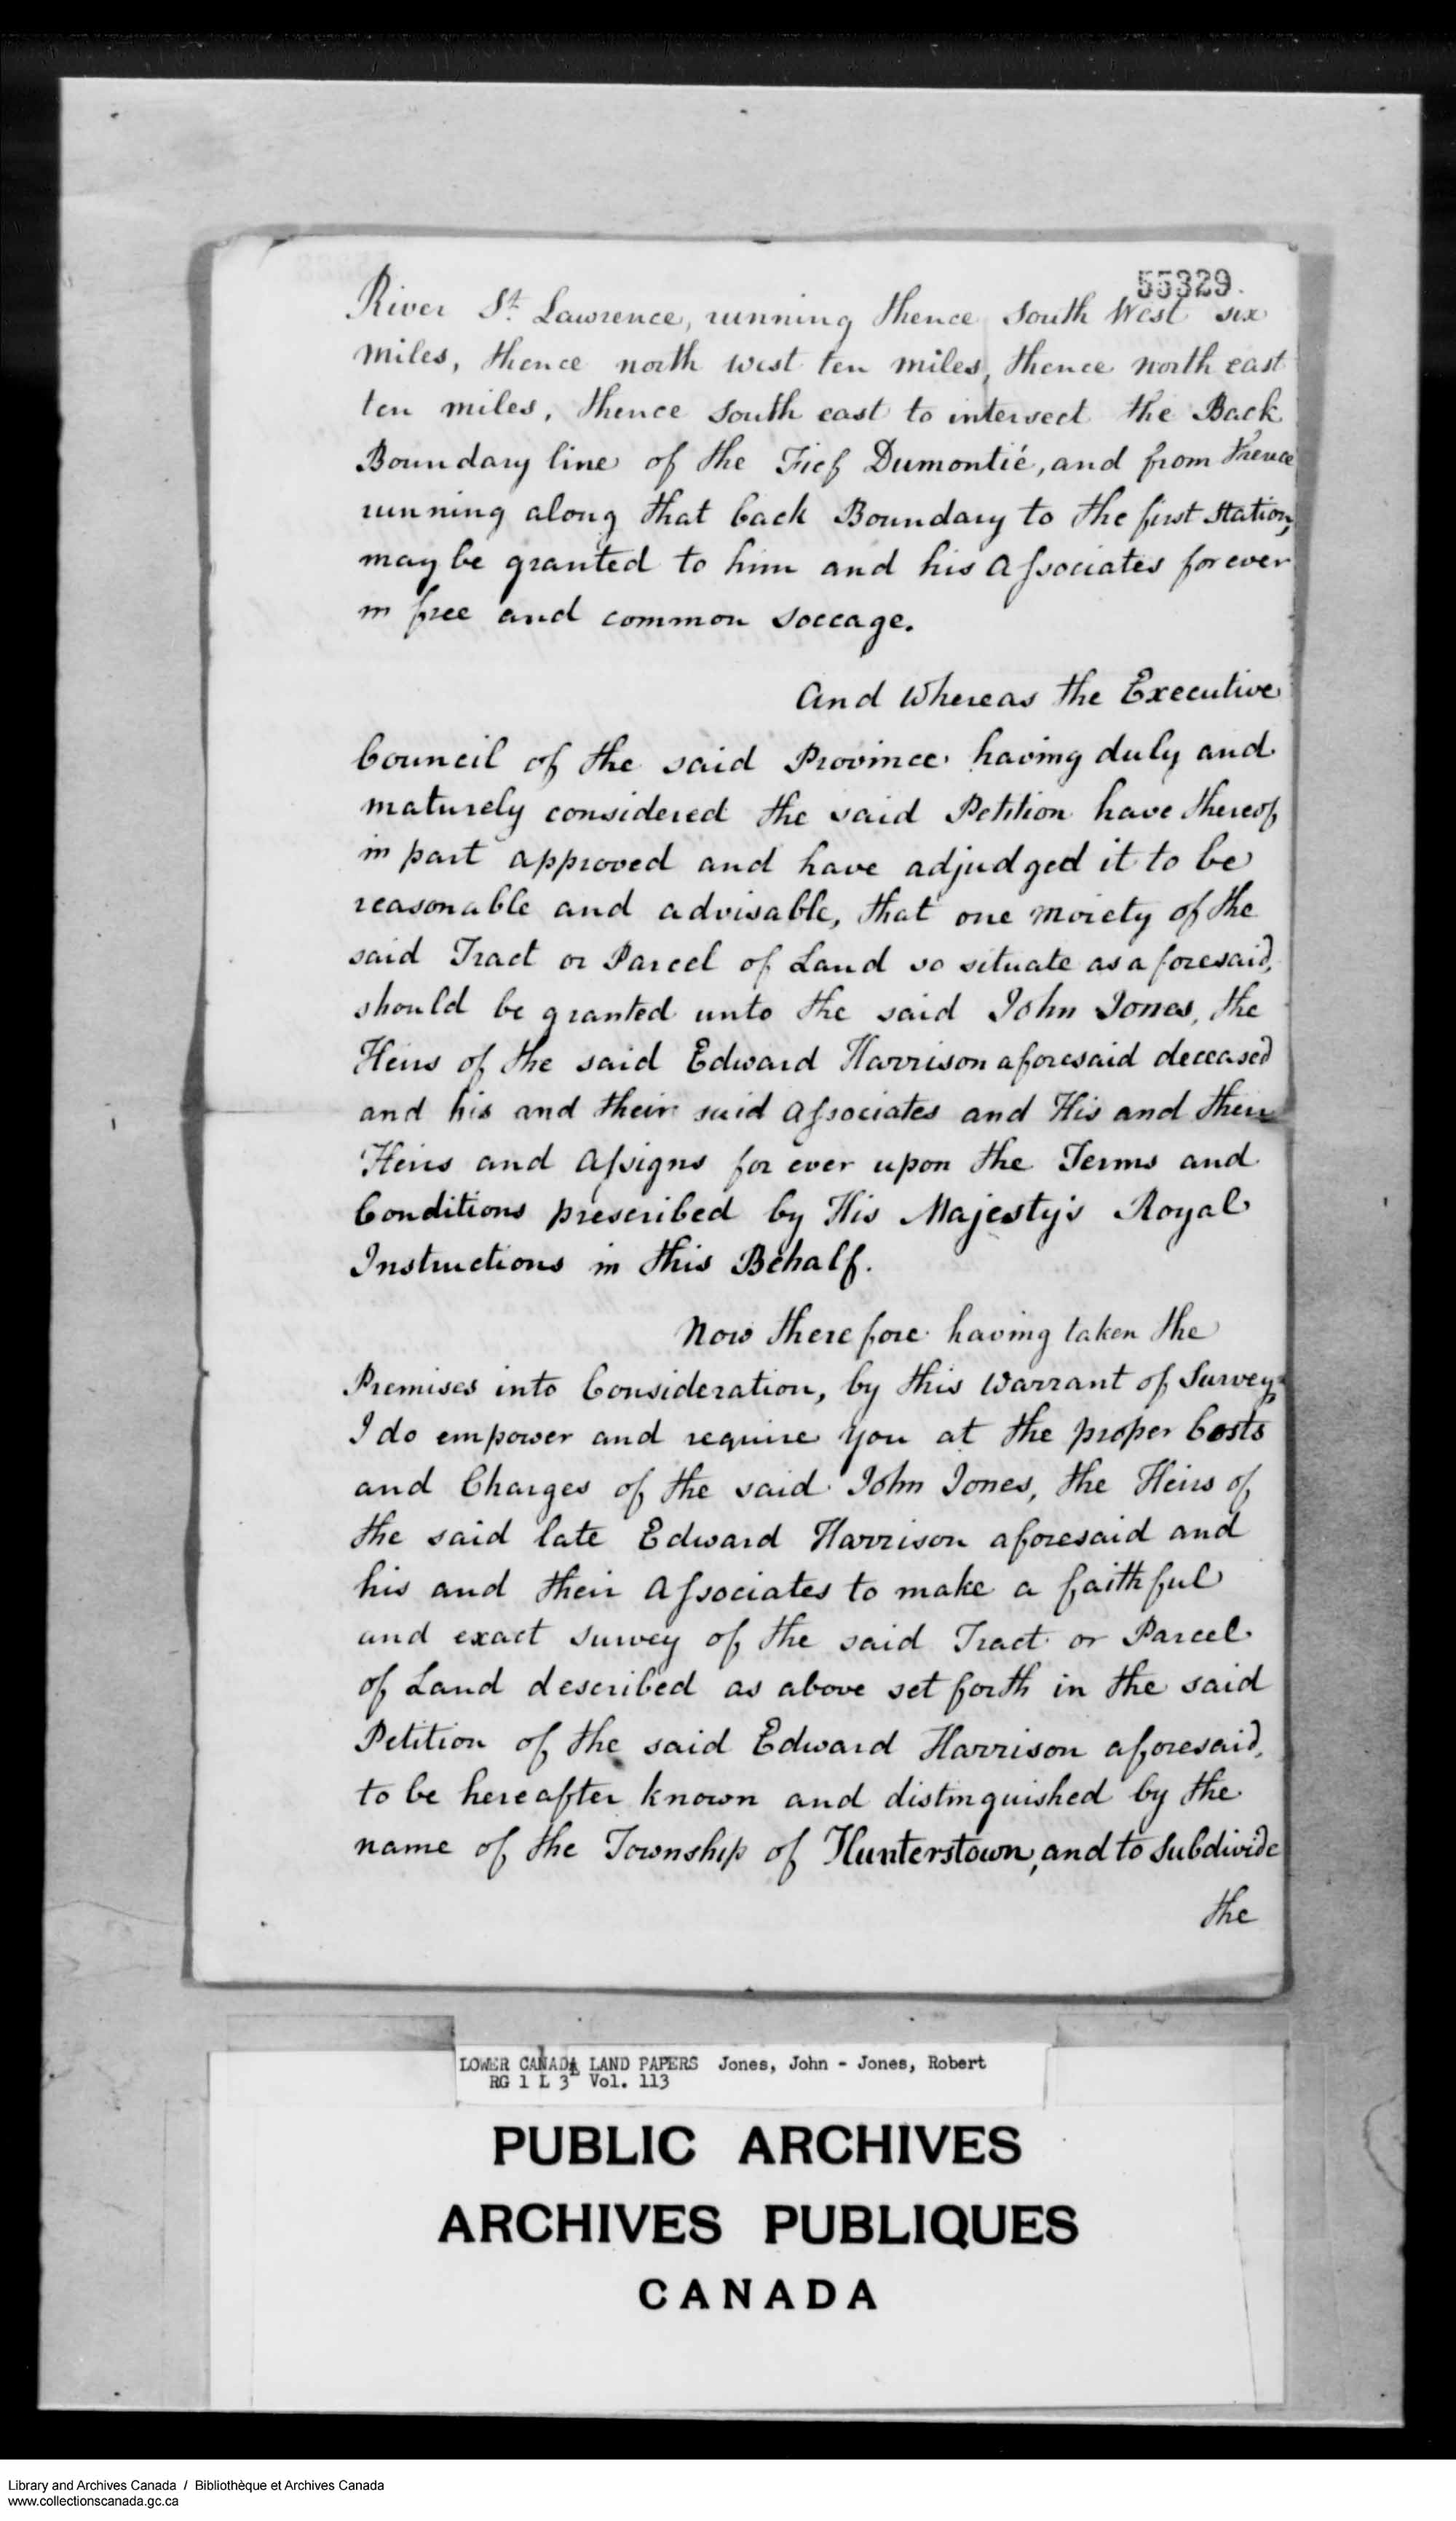 55329.
River St. Lawrence, running thence South West six
miles, thence north west ten miles, thence north east
ten miles, thence South east to intersect the Back
Boundary line of the Fief Dumontié, and from thence
running along that back Boundary to the first Station,
may be granted to him and his Associates for ever
in free and common Soccage.
And Whereas the Executive
Council of the said Province having duly and
maturely considered the said Petition have thereof
in part approved and have adjudged it to be
reasonable and advisable, that one moiety of the
said Tract or Parcel of Land so situate as aforesaid,
should be granted unto the said John Jones, the
Heirs of the said Edward Harrison aforesaid deceased
and his and their said Associates and His and their
Heirs and Assigns for ever upon the Terms and
Conditions prescribed by His Majesty's Royal
Instructions in this Behalf.
Now therefore having taken the
Premises into Consideration, by this Warrant of Survey,
I do empower and require you at the proper Costs
and Charges of the said John Jones, the Heirs of
the said late Edward Harrison aforesaid and
his and their Associates to make a faithful
and exact survey of the said Tract or Parcel
of Land described as above set forth in the said
Petition of the said Edward Harrison aforesaid,
to be hereafter known and distinguished by the
name of the Township of Hunterstown, and to Subdivide
the
LOWER CANADA LAND PAPERS Jones, John - Jones, Robert
RG 1 L 3 Vol. 113
PUBLIC ARCHIVES
ARCHIVES PUBLIQUES
CANADA
Library and Archives Canada / Bibliothèque et Archives Canada
www.collectionscanada.gc.ca